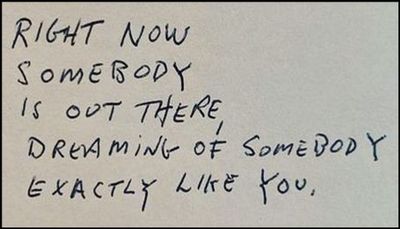 RIGHT NOW
SOMEBODY
IS OUT THERE,
DREAMING OF SOMEBODY
EXACTLY LIKE YOU.